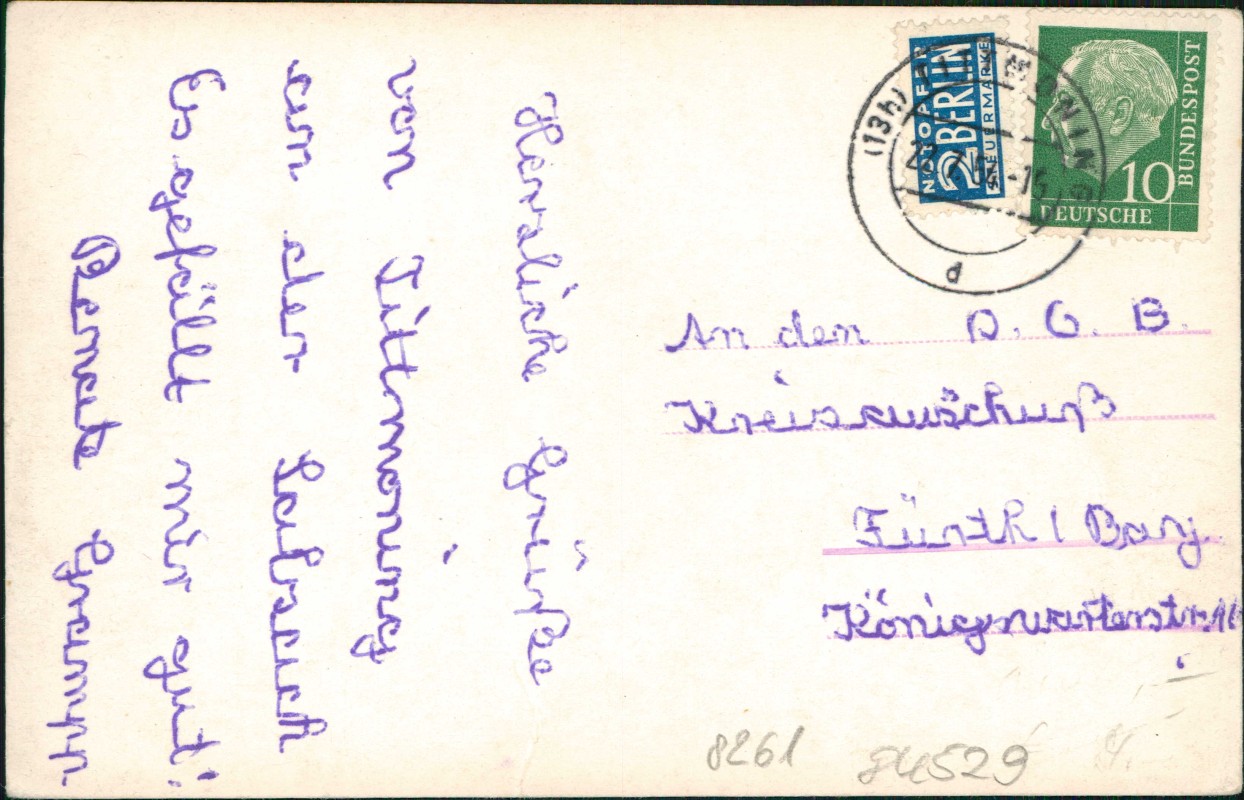 Herzliche Grüße
von Tittmoning
an der Salzach
Es gefällt mir gut!
Renate Grampp
NOTOPFER
2 BERLIN
STEUERMARKE
10
DEUTSCHE
BUNDESPOST
(13b) TITTMONING
d
An den D. G. B.
Kreisauschuß
Fürth / Bay.
Königswarterstr.
8261
84529